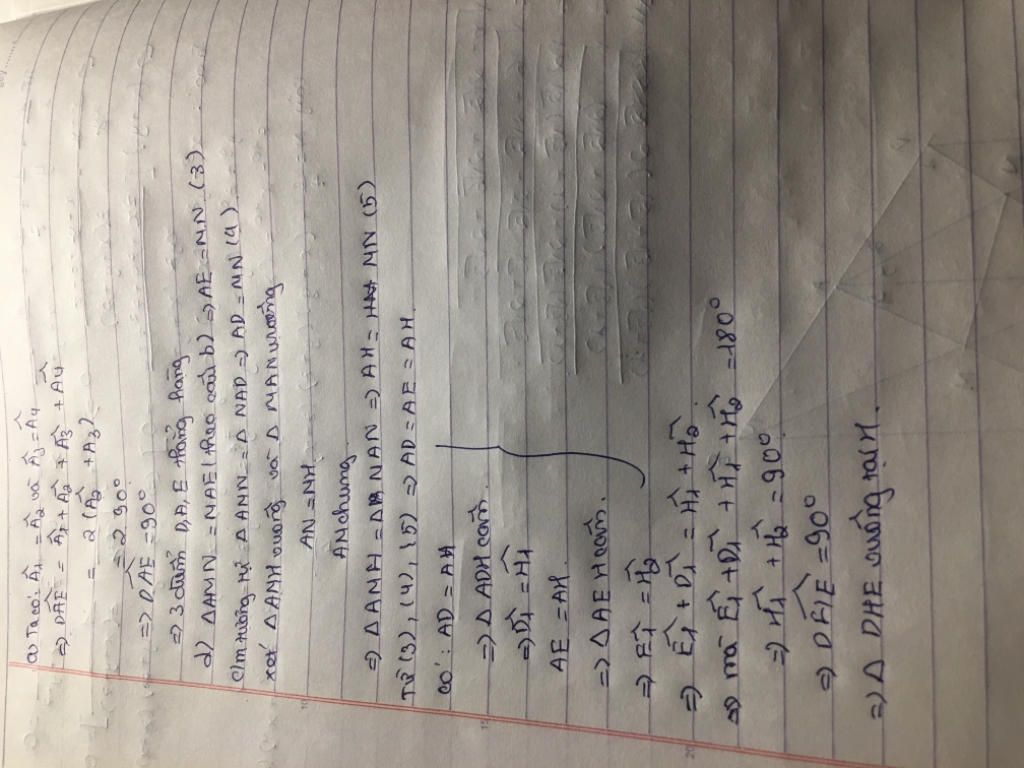 c) Ta có: Â1 = Â2 và Â3 = Â4
=> DÂE = Â1 + Â2 + Â3 + Â4
= 2(Â2 + Â3)
= 2 90°
=> DÂE = 90°
=> 3 điểm D, A, E thẳng hàng
d) ΔAMN = NAE (theo câu b) => AE = MN (3)
C/m tương tự: ΔANN = ΔNAD => AD = MN (4)
xét ΔANH vuông và ΔMAN vuông
AN = NH
AN chung
=> ΔANH = ΔNAN => AH = MN (5)
Từ (3), (4), (5) => AD = AE = AH
có: AD = AH
=> ΔADH cân.
=> D̂1 = Ĥ1
AE = AH.
=> ΔAEH cân.
=> Ê1 = Ĥ2
=> Ê1 + D̂1 = Ĥ1 + Ĥ2
=> mà Ê1 + D̂1 + Ĥ1 + Ĥ2 = 180°
=> Ĥ1 + Ĥ2 = 90°
=> DĤE = 90°
=> Δ DHE vuông tại H.